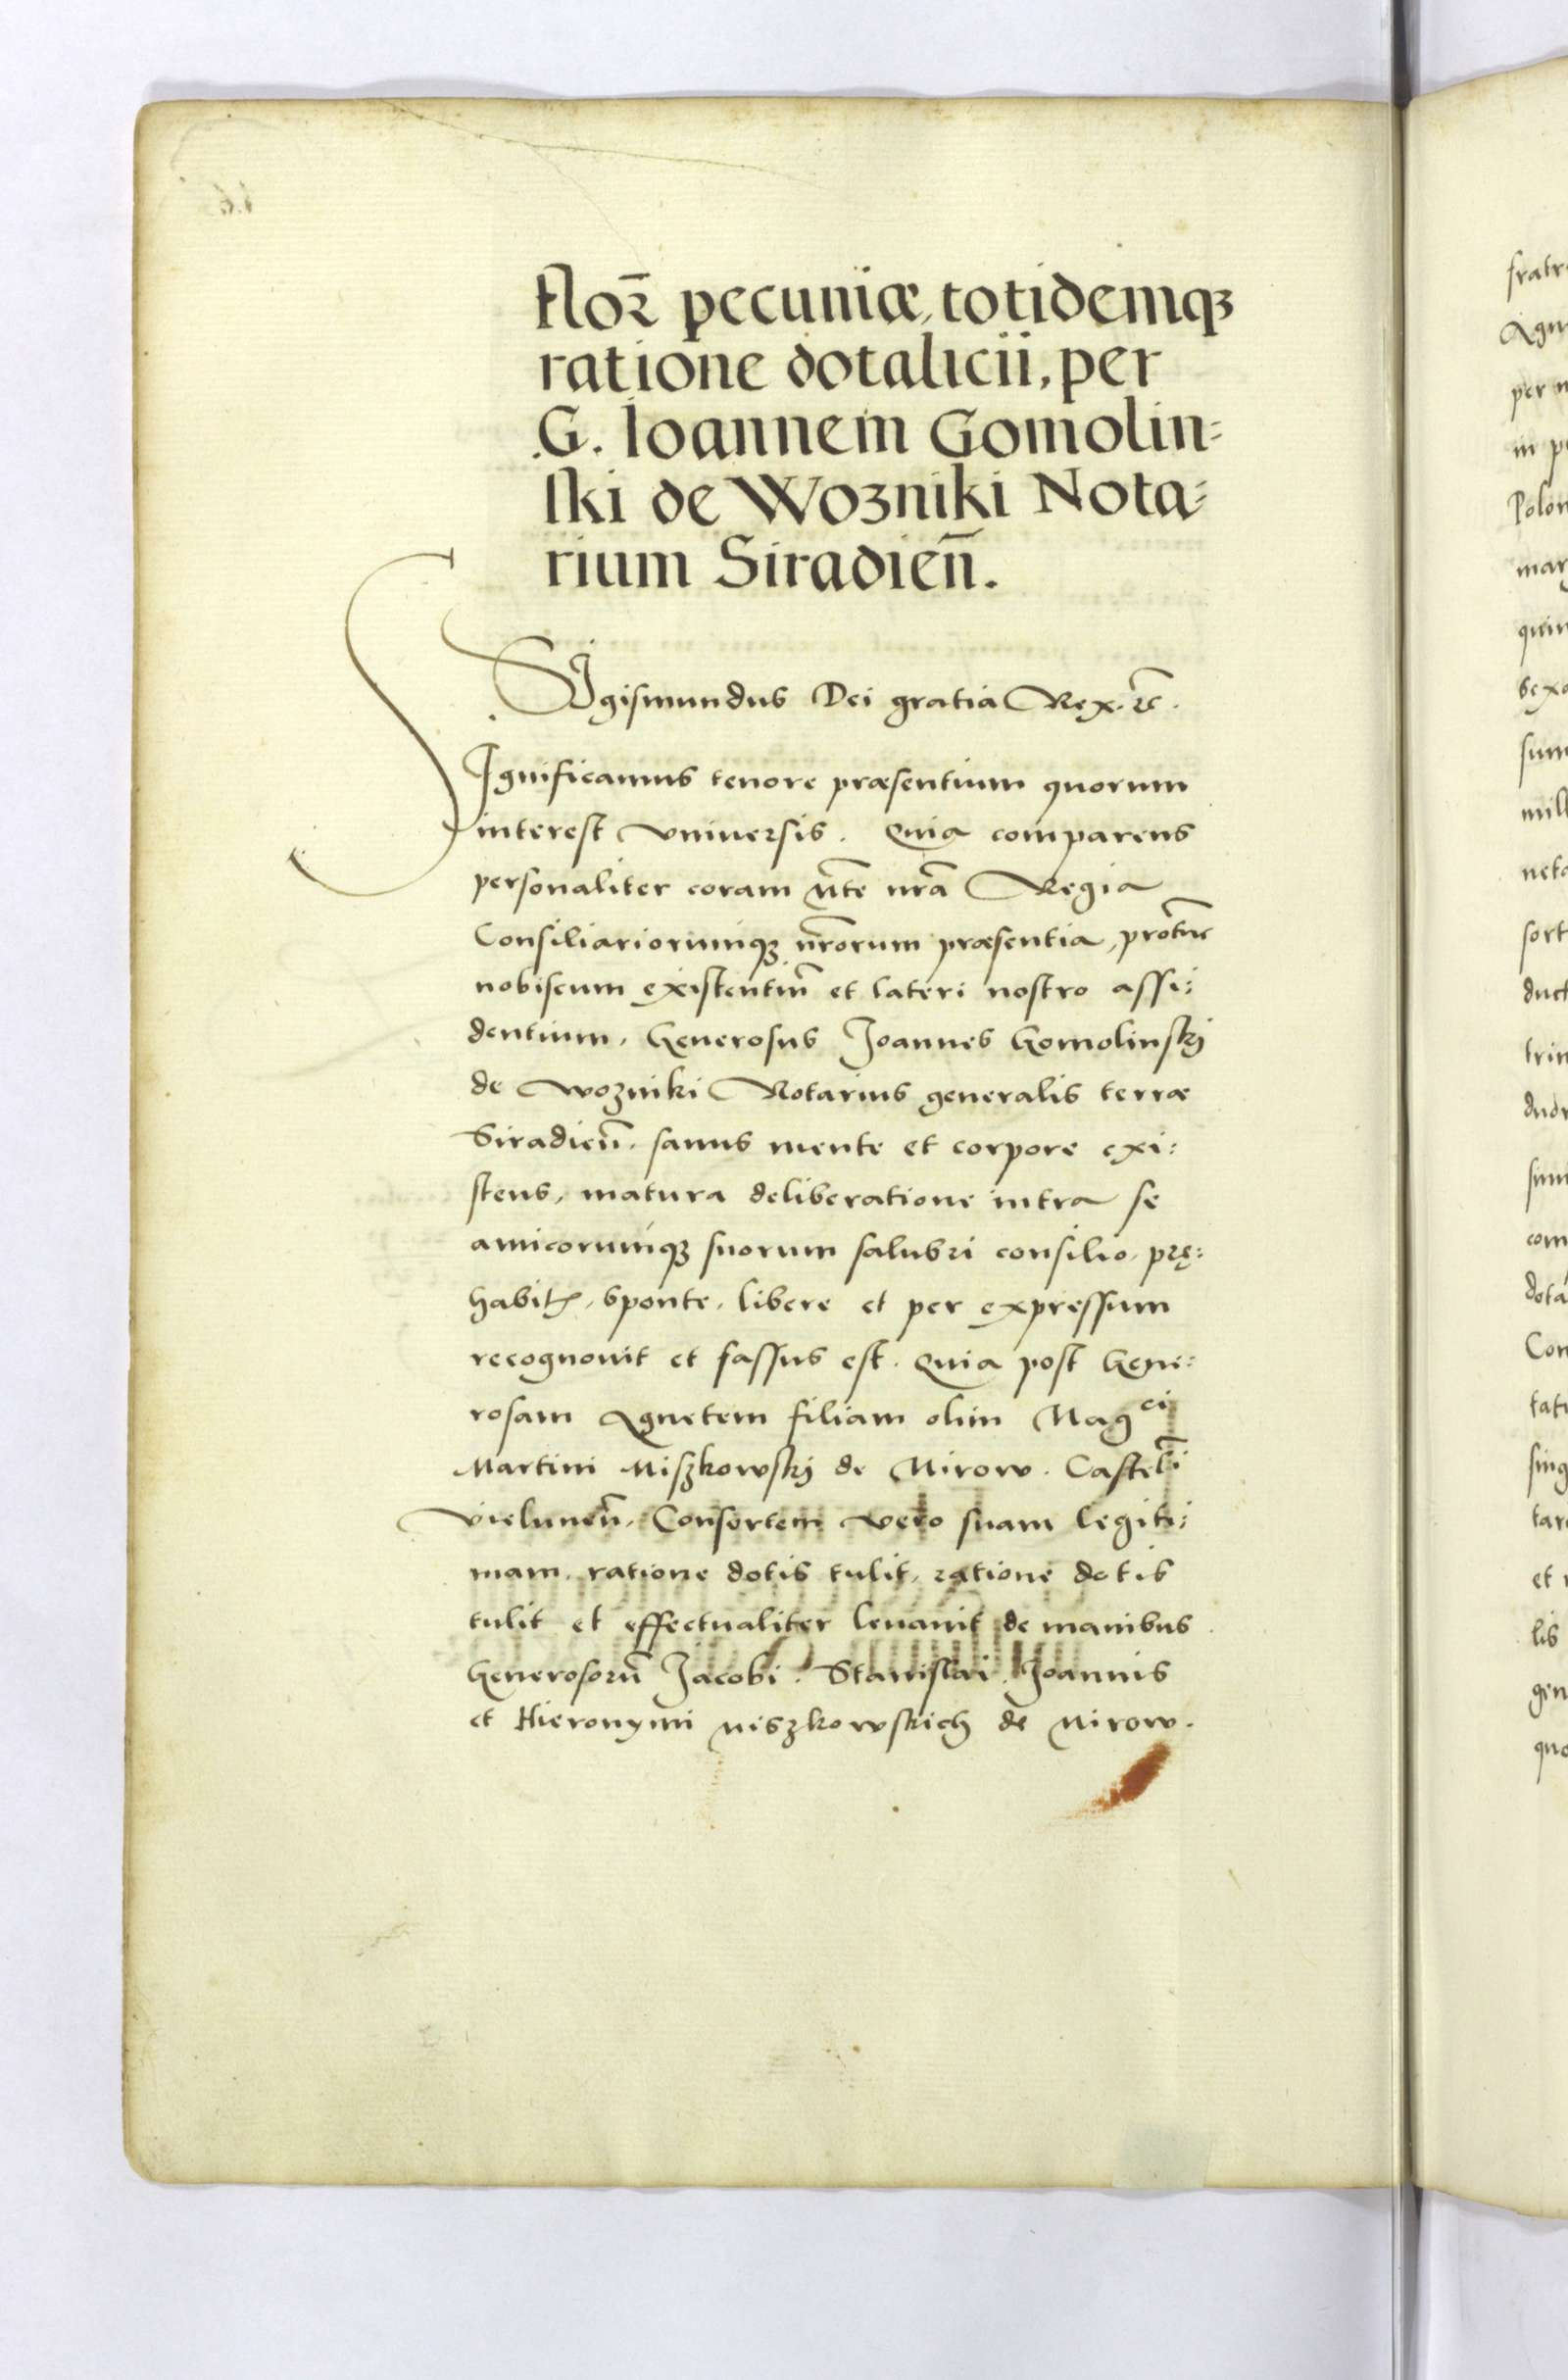 flor̃ pecuniæ, totidemq₃
ratione dotalicii, per
G. Ioannem Gomolin⸗
ski de Wozniki Nota⸗
rium Siradień.
SIgismundus Dei gratia Rex. &c.
SIgnificamus tenore præsentium quorum
interest vniuersis. Quia comparens
personaliter coram Mte nr̃a Regia
Consiliariorumq₃ nr̃orum præsentia, pro tunc
nobiscum existentiũ et lateri nostro assi:
dentium, Generosus Joannes Gomolinskj
de Wozniki Notarius generalis terræ
Siradien̄. sanus mente et corpore exi:
stens, matura deliberatione intra se
amicorumq₃ suorum salubri consilio. prę:
habitꝭ, sponte, libere et per expressum
recognouit et fassus est. Quia post Gene:
rosam Agnetem filiam olim Magci
Martini Miszkowskj de Mirow. Castell̃i
Vielunen̄. Consortem vero suam legiti:
mam. ratione dotis tulit. ratione dotis
tulit et effectualiter leuauit de manibus
Generosorũ Jacobi. Stanislai. Joannis
et Hieronymi Miszkowskich de Mirow.
fratr
Agn
per n
in p
Polon
mar
quin
sexa
sum
mil
neta
sort
duct
trin
duor
sum
com
dota
Con
tati
sing
tar
et
lis
gen
quo